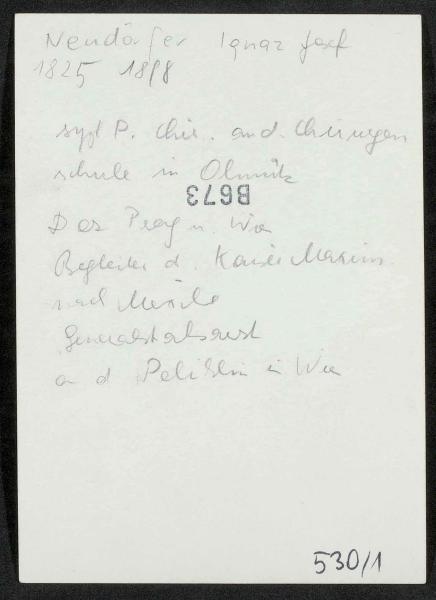 Neudörfer Ignaz Josef
1825 1898
suppl P. Chir. an d. Chirurgen
schule in Olmütz
B673
Doz Prag u. Wien
Begleiter d. Kaiser Maxim.
nach Mexiko
Generalstabsarzt
an d Poliklin in Wien
530/1